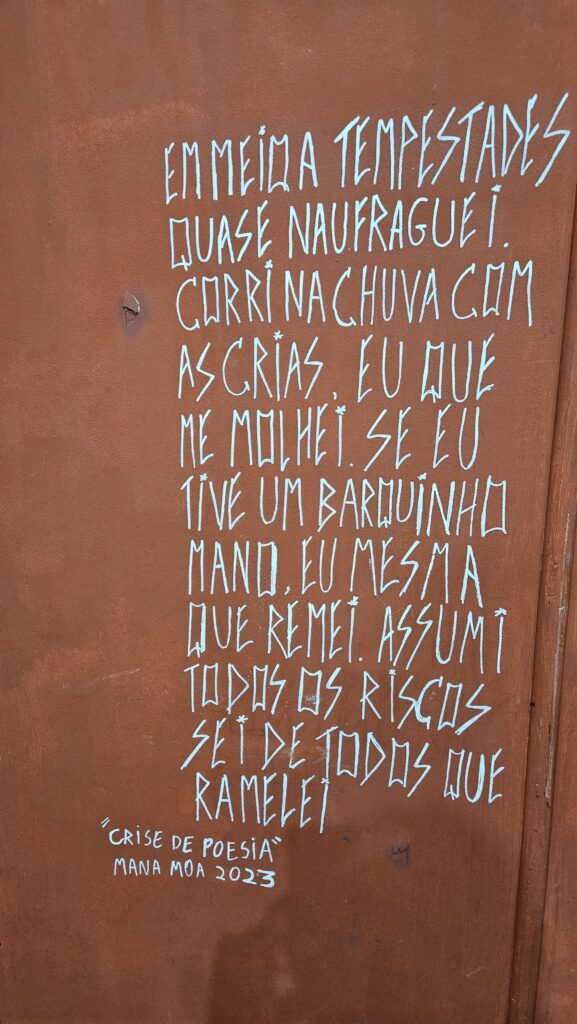 EM MEIO A TEMPESTADES
QUASE NAUFRAGUEI.
CORRI NA CHUVA COM
AS CRIAS, EU QUE
ME MOLHEI. SE EU
TIVE UM BARQUINHO
MANO, EU MESMA
QUE REMEI. ASSUMI
TODOS OS RISCOS
SEI DE TODOS QUE
RAMELEI
"CRISE DE POESIA"
MANA MOA 2023